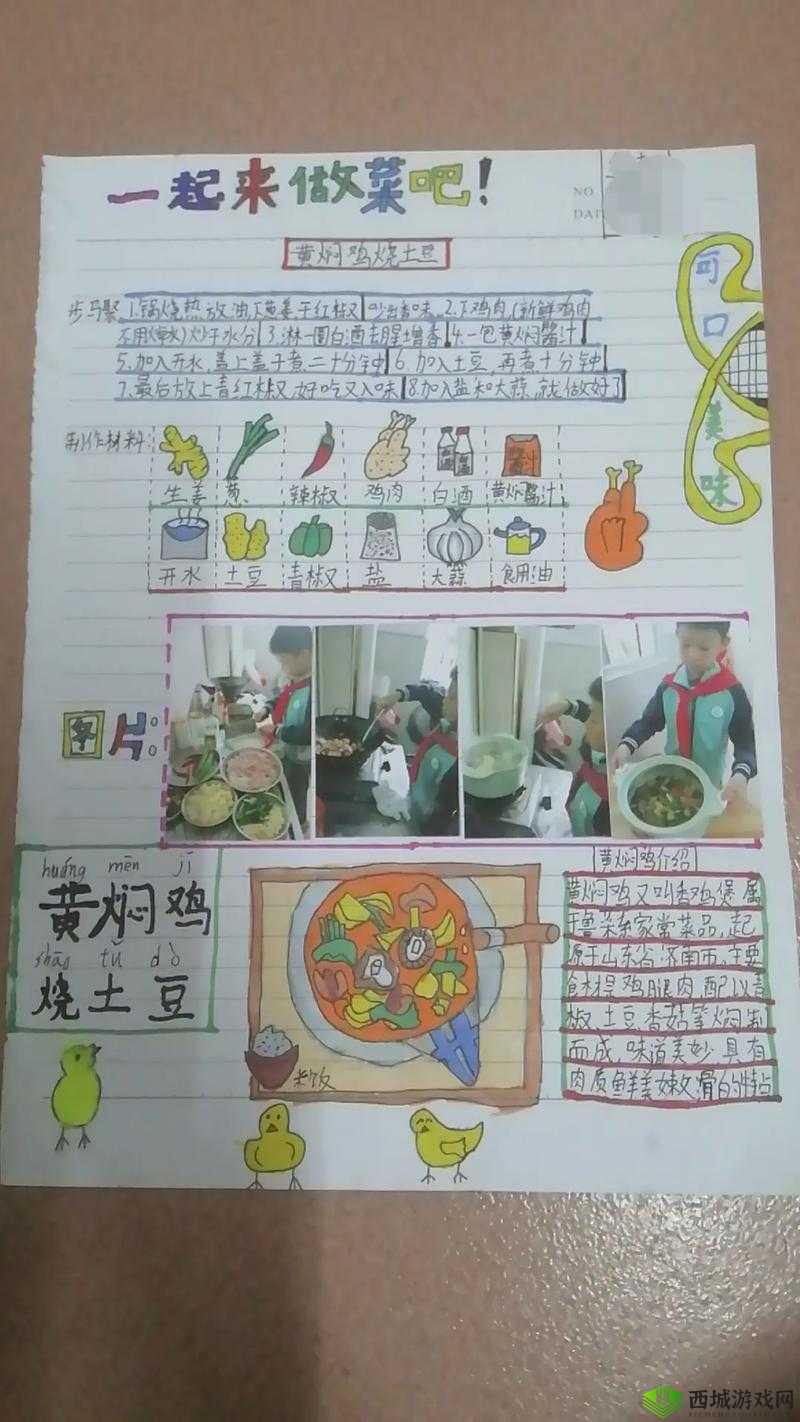 一起来做菜吧!
NO.
DAT
黄焖鸡烧土豆
步骤 1.锅烧热放油,下葱姜干红椒 炒出香味 2.下鸡肉(新鲜鸡肉
不用焯水)炒干水分 3.淋一圈白酒去腥增香 4.一包黄焖酱汁
5.加入开水,盖上盖子煮二十分钟 6.加入土豆,再煮十分钟
7.最后放上青红椒,好吃又入味 8.加入盐和大蒜,就做好了
可口美味
制作材料:
生姜 葱 辣椒 鸡肉 白酒 黄焖酱汁
开水 土豆 青椒 盐 大蒜 食用油
图片:
huáng mēn jī
黄焖鸡
shāo tǔ dò
烧土豆
米饭
黄焖鸡介绍
黄焖鸡又叫香鸡煲,属
于鲁菜系家常菜品,起
源于山东省济南市,主要
食材是鸡腿肉,配以青
椒、土豆、香菇等焖制
而成,味道美妙,具有
肉质鲜美嫩滑的特点
西城游戏网